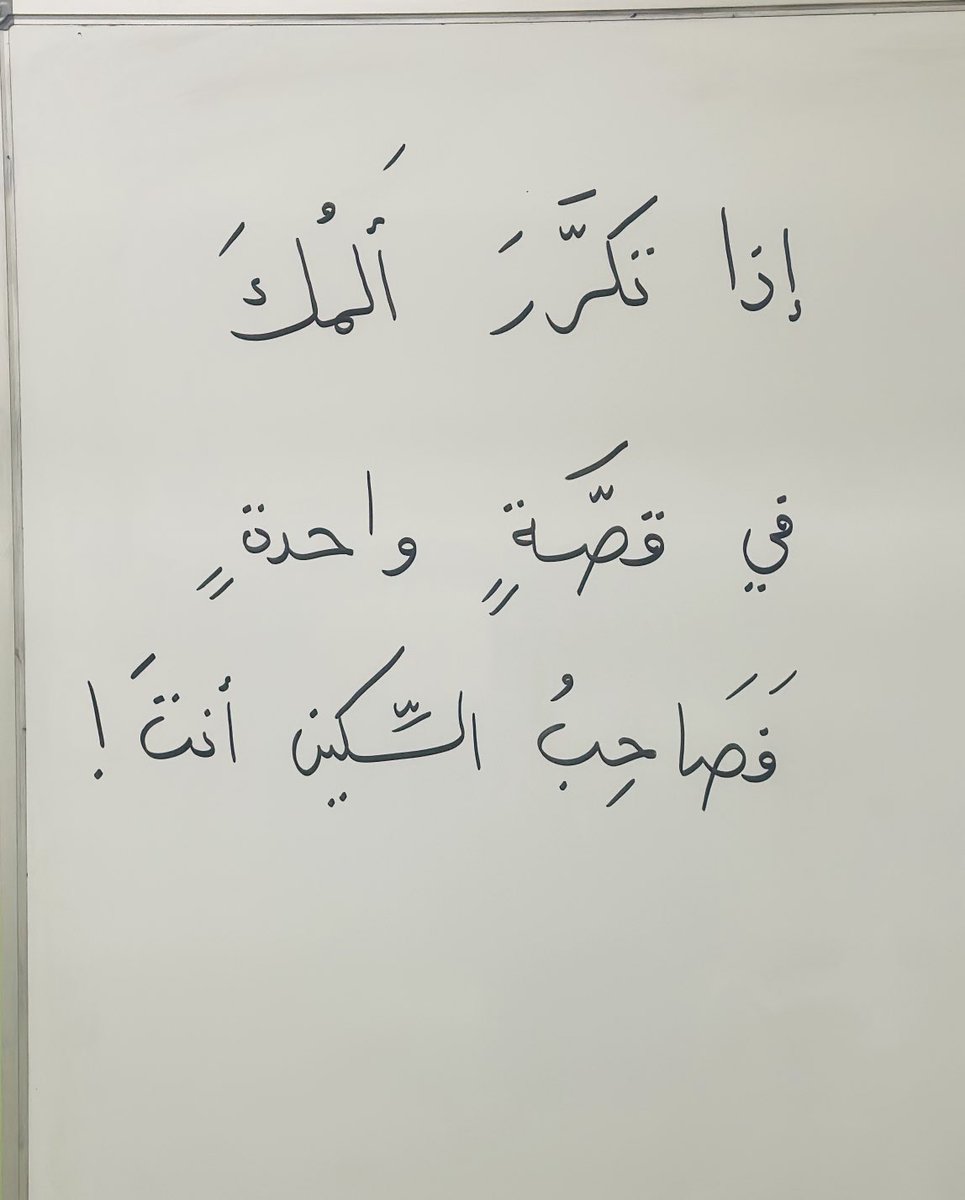 إذا تكرَّرَ أَلمُكَ
في قصَّةٍ واحدةٍ
فَصَاحِبُ السِّكين أنتَ !